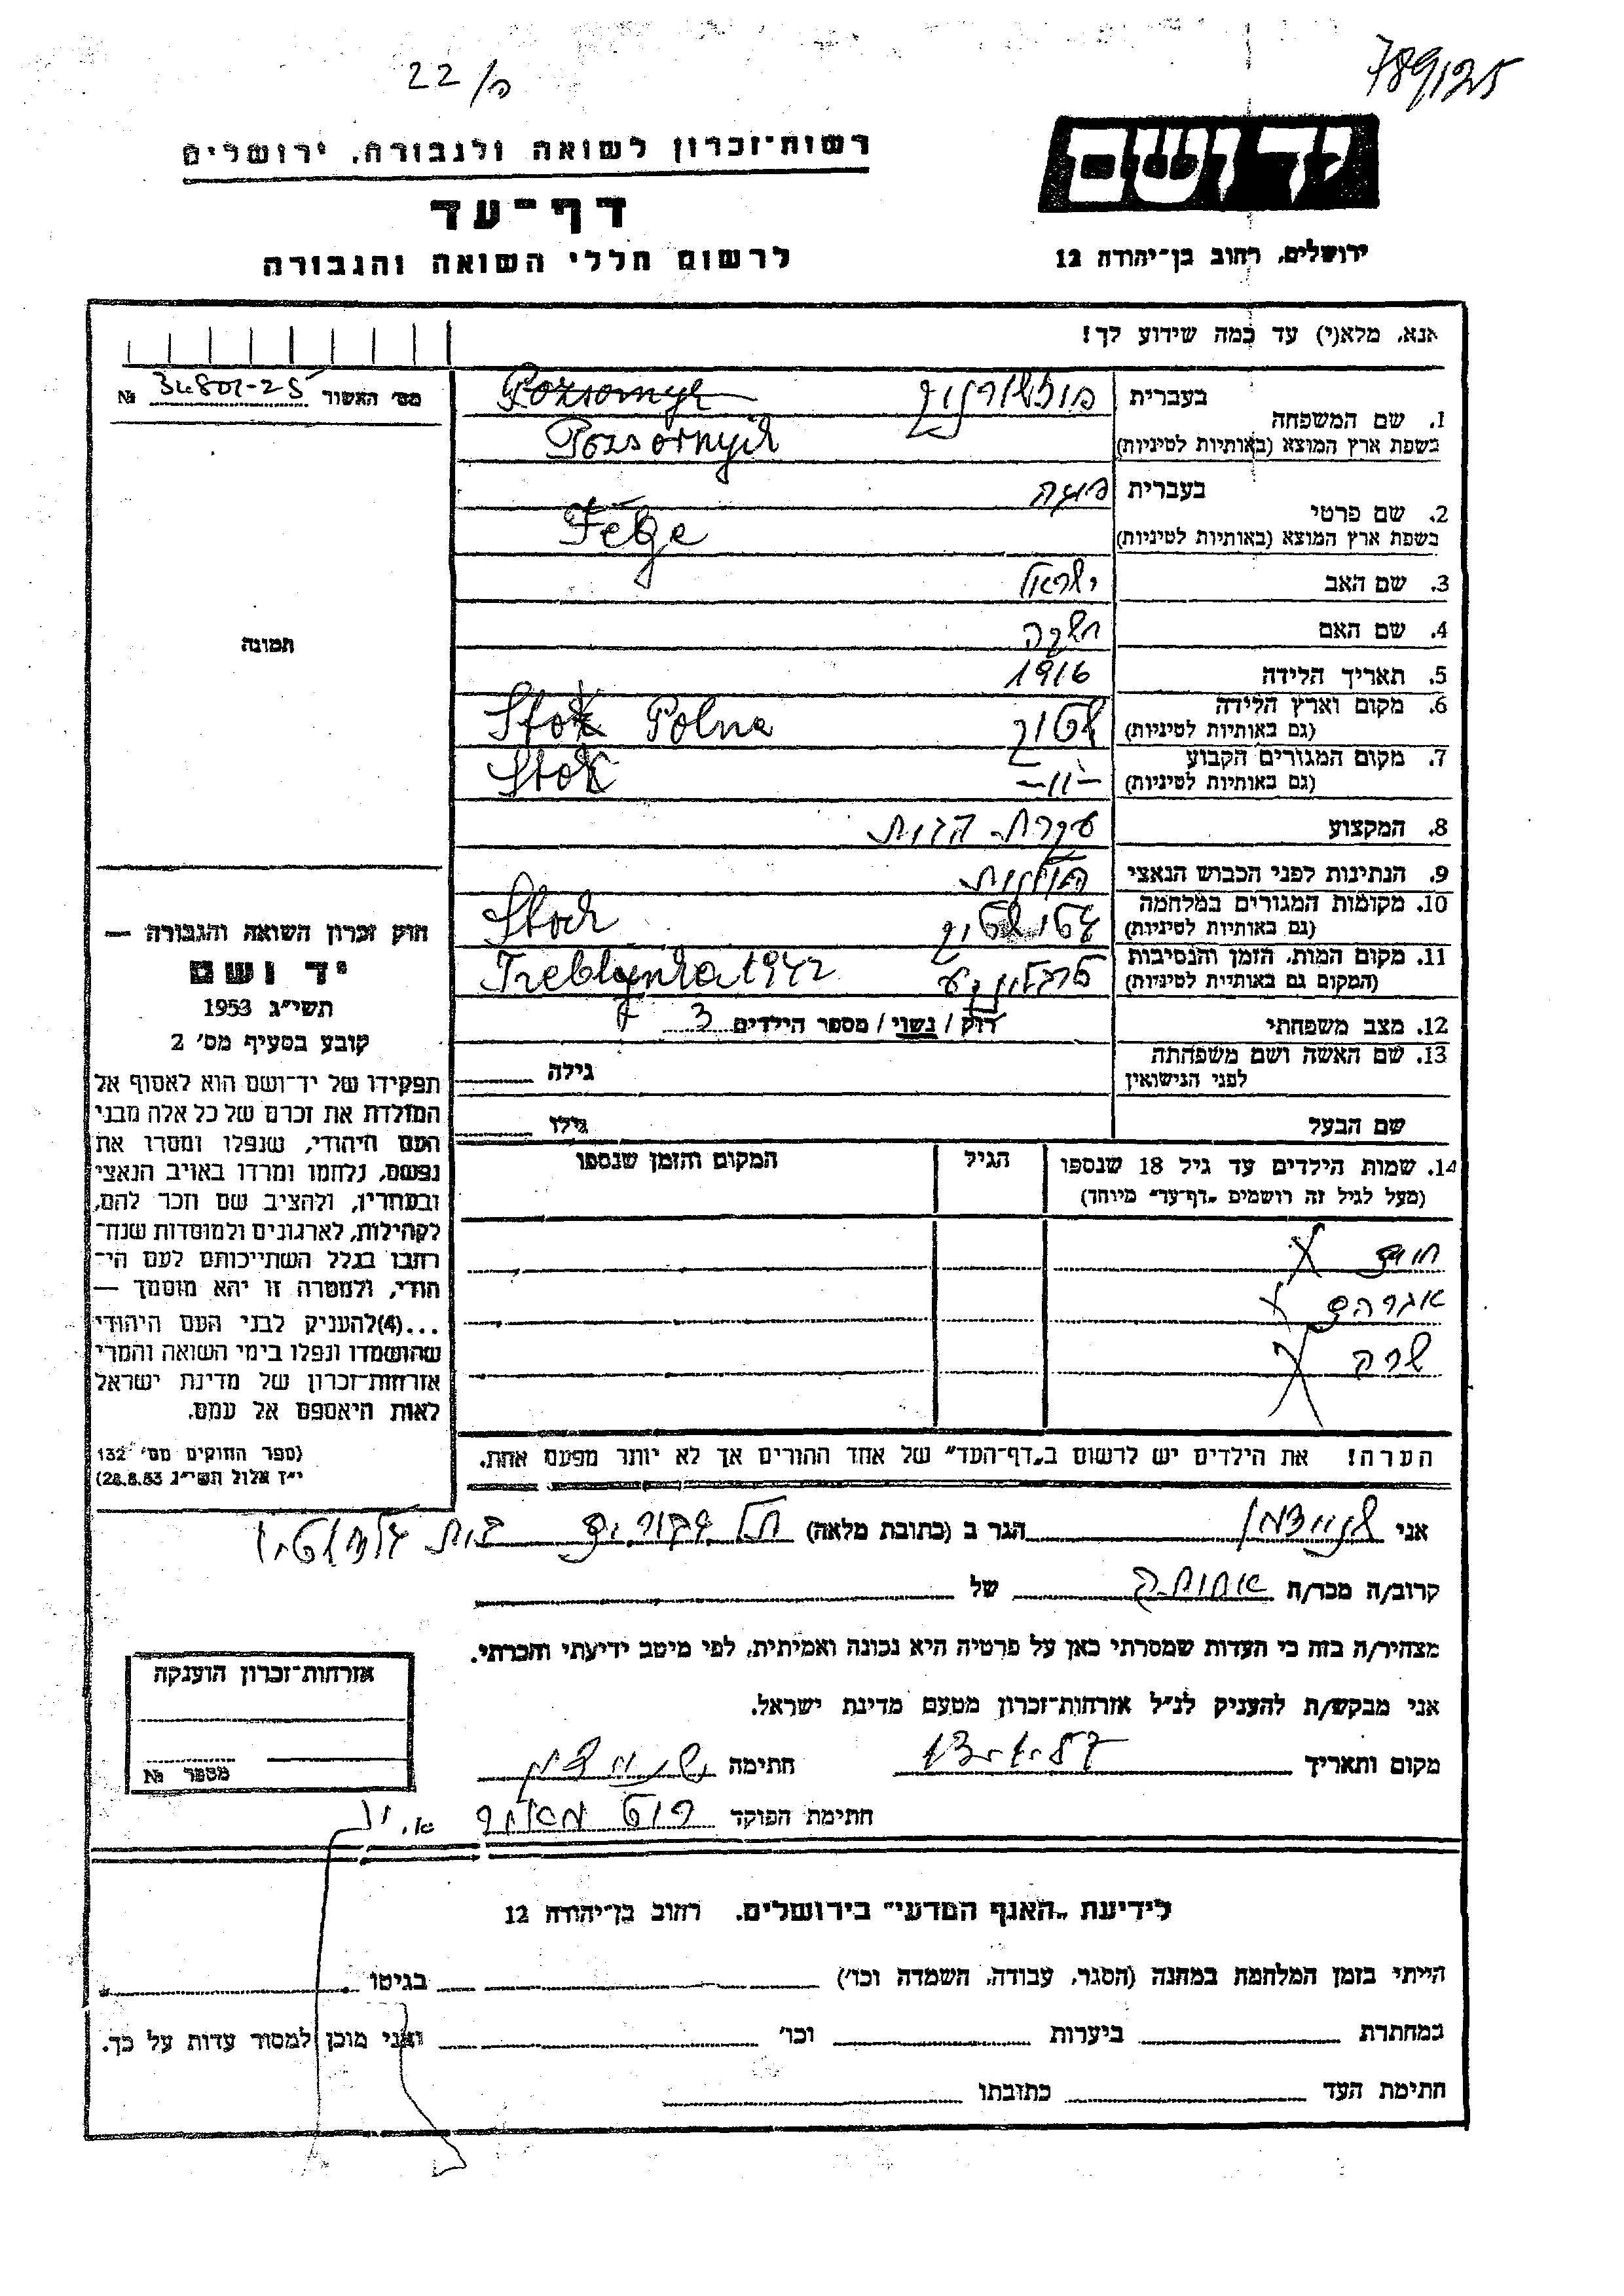 789125
22/פ
יד ושם
ירושלים, רחוב בן־יהודה 12
רשות־זכרון לשואה ולגבורה, ירושלים
דף־עד
לרשום חללי השואה והגבורה
אנא, מלא(י) עד כמה שידוע לך!
מס' האשור 34801-25 №
1. שם המשפחה
בעברית
Pozsornyk
בשפת ארץ המוצא (באותיות לטיניות) Pozsornyik
2. שם פרטי
בעברית פייגה
בשפת ארץ המוצא (באותיות לטיניות) Fejge
3. שם האב ישראל
4. שם האם
5. תאריך הלידה 1916
6. מקום וארץ הלידה (גם באותיות לטיניות) סטוק Stok Polna
7. מקום המגורים הקבוע (גם באותיות לטיניות) -"- Stok
8. המקצוע עקרת הבית
9. הנתינות לפני הכבוש הנאצי פולנית
10. מקומות המגורים במלחמה (גם באותיות לטיניות) סטוק Stock
11. מקום המות, הזמן והנסיבות (המקום גם באותיות לטיניות) טרבלינקע Treblynka 1942
12. מצב משפחתי רוק / נשוי / מספר הילדים 3
13. שם האשה ושם משפחתה לפני הנישואין גילה
שם הבעל גילו
14. שמות הילדים עד גיל 18 שנספו
(מעל לגיל זה רושמים „דף־עד" מיוחד)
הגיל
המקום והזמן שנספו
אברהם
שרה
הערה! את הילדים יש לרשום ב„דף־העד" של אחד ההורים אך לא יותר מפעם אחת.
תמונה
חוק זכרון השואה והגבורה —
יד ושם
תשי"ג 1953
קובע בסעיף מס' 2
תפקידו של יד־ושם הוא לאסוף אל
המולדת את זכרם של כל אלה מבני
העם היהודי, שנפלו ומסרו את
נפשם, נלחמו ומרדו באויב הנאצי
ובעוזריו, ולהציב שם וזכר להם,
לקהילות, לארגונים ולמוסדות שנח־
רבו בגלל השתייכותם לעם הי־
הודי, ולמטרה זו יהא מוסמך —
...(4) להעניק לבני העם היהודי
שהושמדו ונפלו בימי השואה והמרי
אזרחות־זכרון של מדינת ישראל
לאות היאספם אל עמם.
(ספר החוקים מס' 132
י"ז אלול תשי"ג 28.8.53)
אני שניידמן הגר ב (כתובת מלאה)
קרוב/ה מכר/ה אחותה של
מצהיר/ה בזה כי העדות שמסרתי כאן על פרטיה היא נכונה ואמיתית, לפי מיטב ידיעתי והכרתי.
אני מבקש/ת להעניק לנ"ל אזרחות־זכרון מטעם מדינת ישראל.
מקום ותאריך חתימה שניידמן
חתימת הפוקד
אזרחות־זכרון הוענקה
מספר №
לידיעת „האגף המדעי" בירושלים, רחוב בן־יהודה 12
הייתי בזמן המלחמה במחנה (הסגר, עבודה, השמדה וכו') בגיטו
במחתרת ביערות וכו' ואני מוכן למסור עדות על כך.
חתימת העד כתובתו